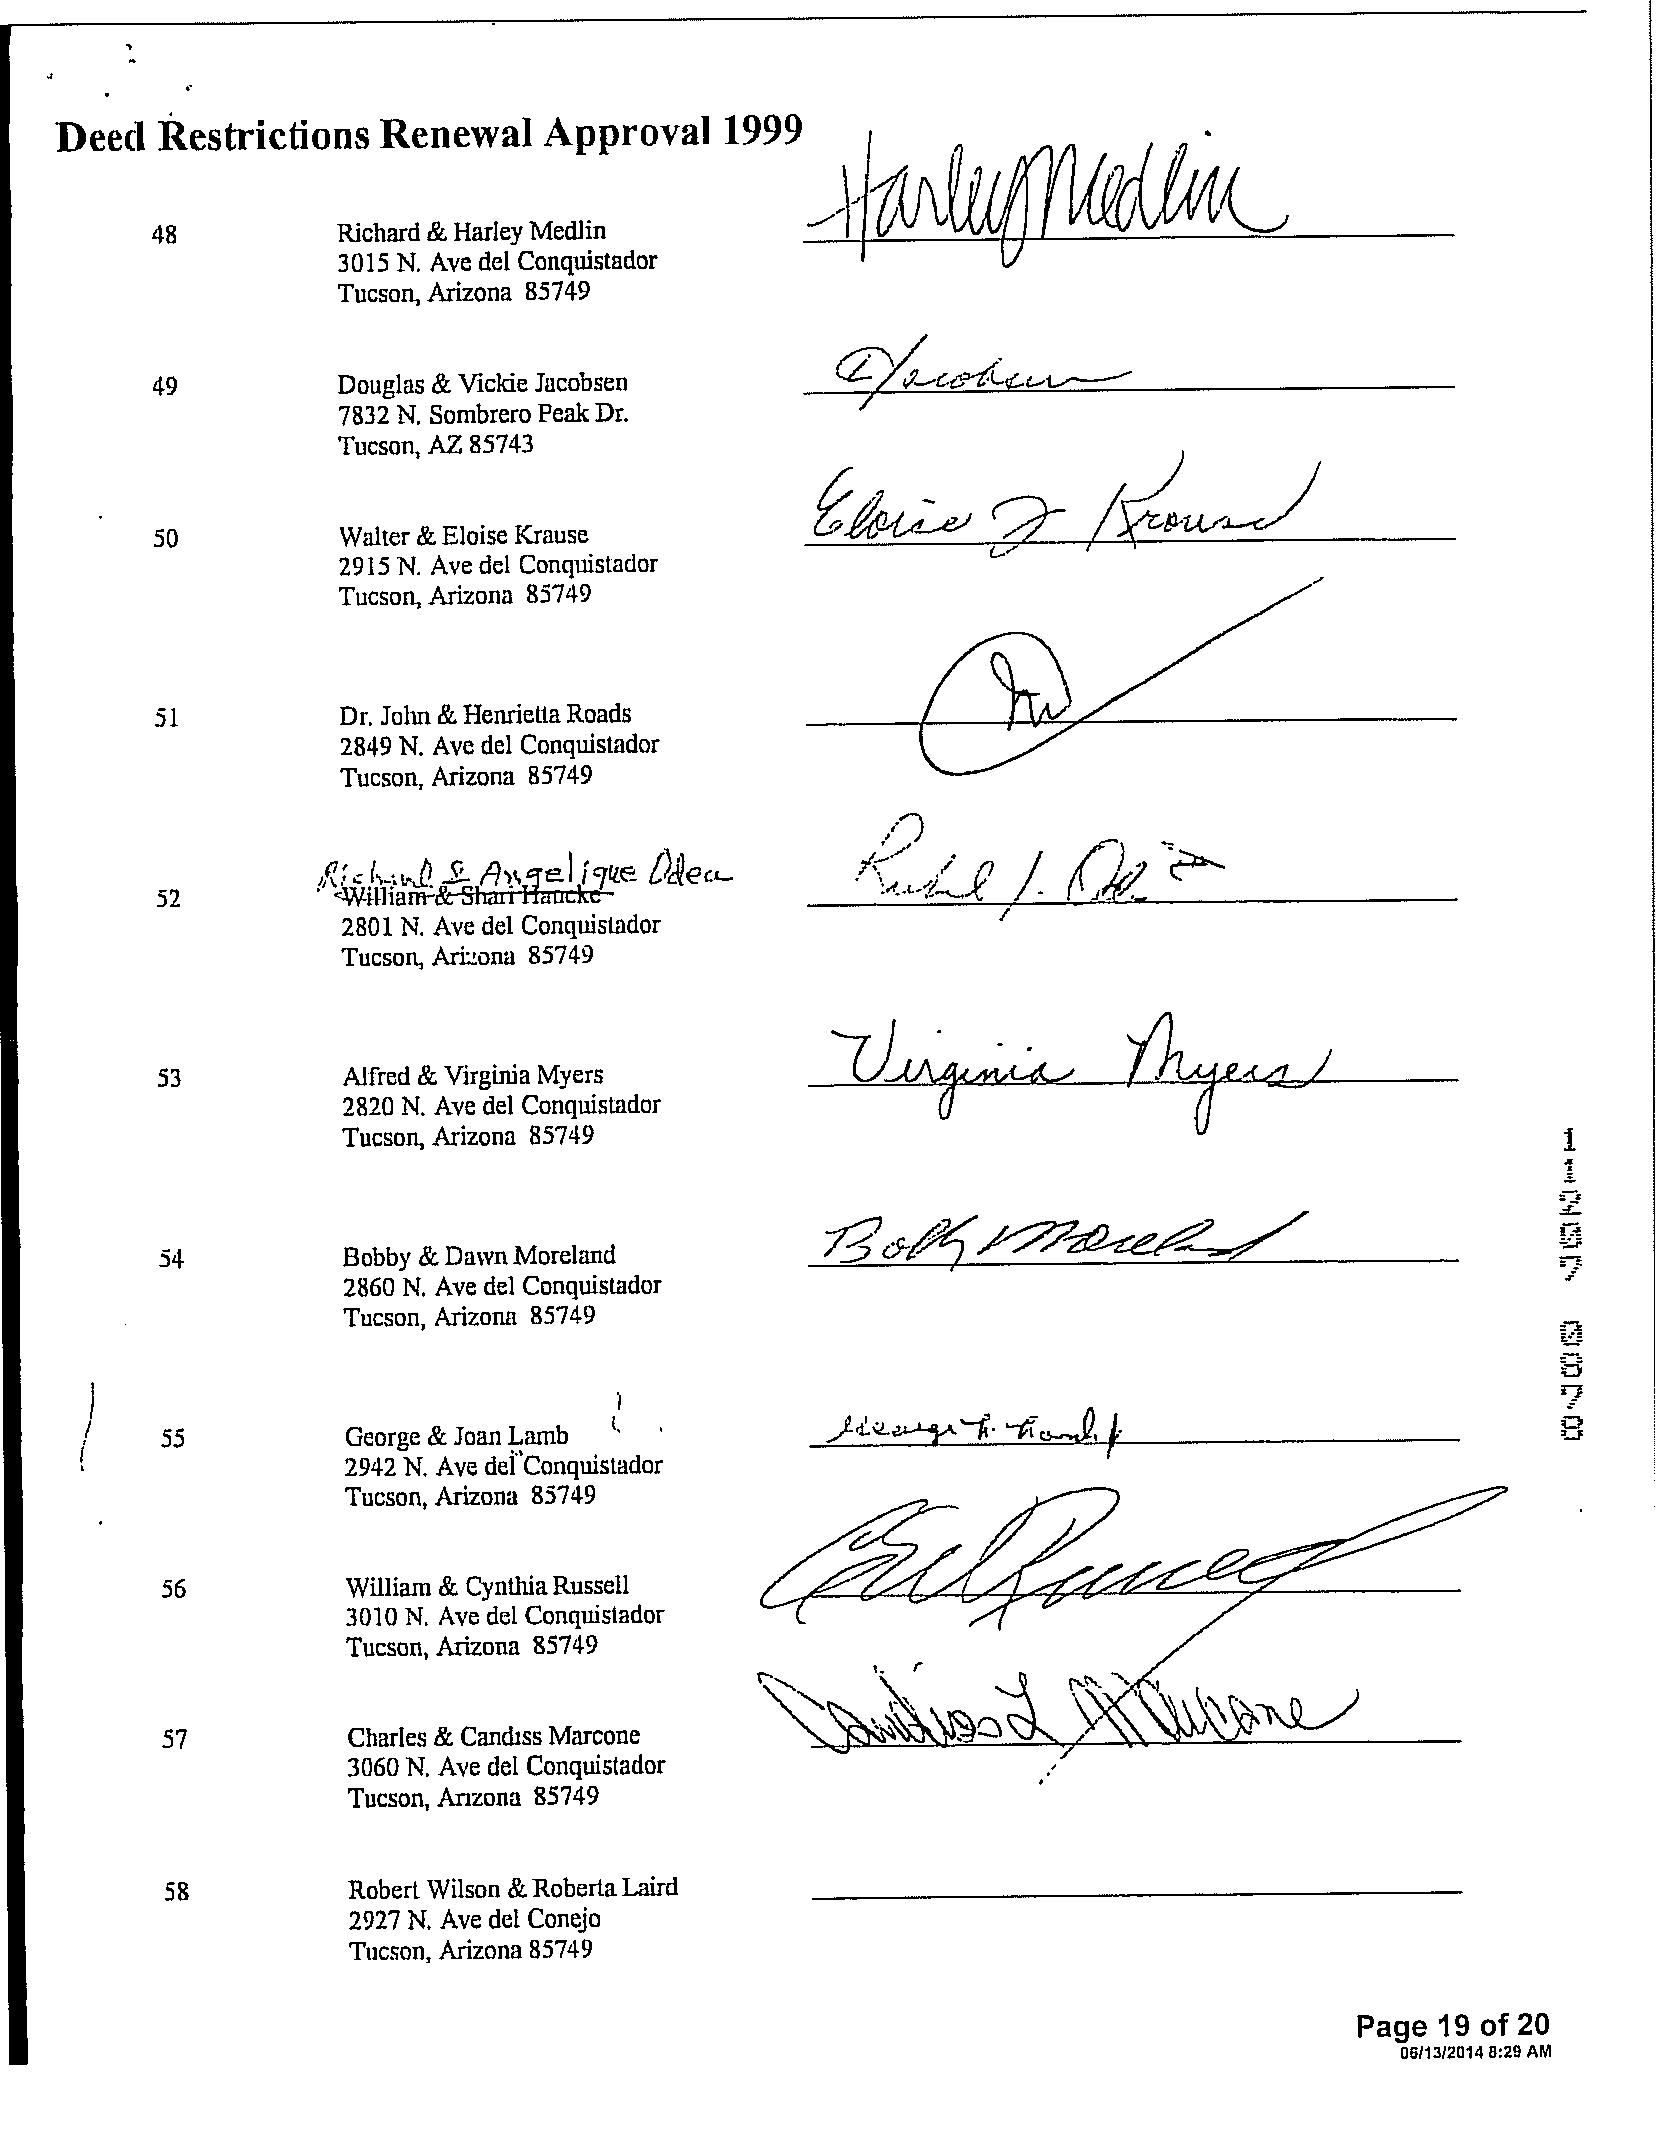 Deed Restrictions Renewal Approval 1999
Harley Medlin
48
Richard & Harley Medlin
3015 N. Ave del Conquistador
Tucson, Arizona 85749
Jacobsen
49
Douglas & Vickie Jacobsen
7832 N. Sombrero Peak Dr.
Tucson, AZ 85743
Eloise J Krause
50
Walter & Eloise Krause
2915 N. Ave del Conquistador
Tucson, Arizona 85749
51
Dr. John & Henrietta Roads
2849 N. Ave del Conquistador
Tucson, Arizona 85749
Richard & Angelique Odea
52
William & Shari Hancke
2801 N. Ave del Conquistador
Tucson, Arizona 85749
Virginia Myers
53
Alfred & Virginia Myers
2820 N. Ave del Conquistador
Tucson, Arizona 85749
Bobby Moreland
54
Bobby & Dawn Moreland
2860 N. Ave del Conquistador
Tucson, Arizona 85749
George Lamb
55
George & Joan Lamb
2942 N. Ave del Conquistador
Tucson, Arizona 85749
56
William & Cynthia Russell
3010 N. Ave del Conquistador
Tucson, Arizona 85749
Candiss L Marcone
57
Charles & Candiss Marcone
3060 N. Ave del Conquistador
Tucson, Arizona 85749
58
Robert Wilson & Roberta Laird
2927 N. Ave del Conejo
Tucson, Arizona 85749
Page 19 of 20
06/13/2014 8:29 AM